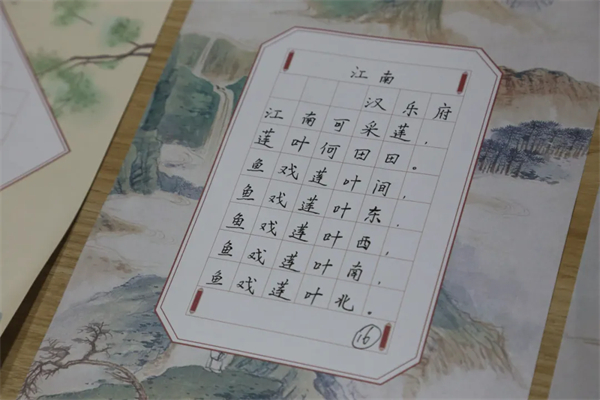 江南
汉乐府
江南可采莲，
莲叶何田田。
鱼戏莲叶间，
鱼戏莲叶东，
鱼戏莲叶西，
鱼戏莲叶南，
鱼戏莲叶北。
16